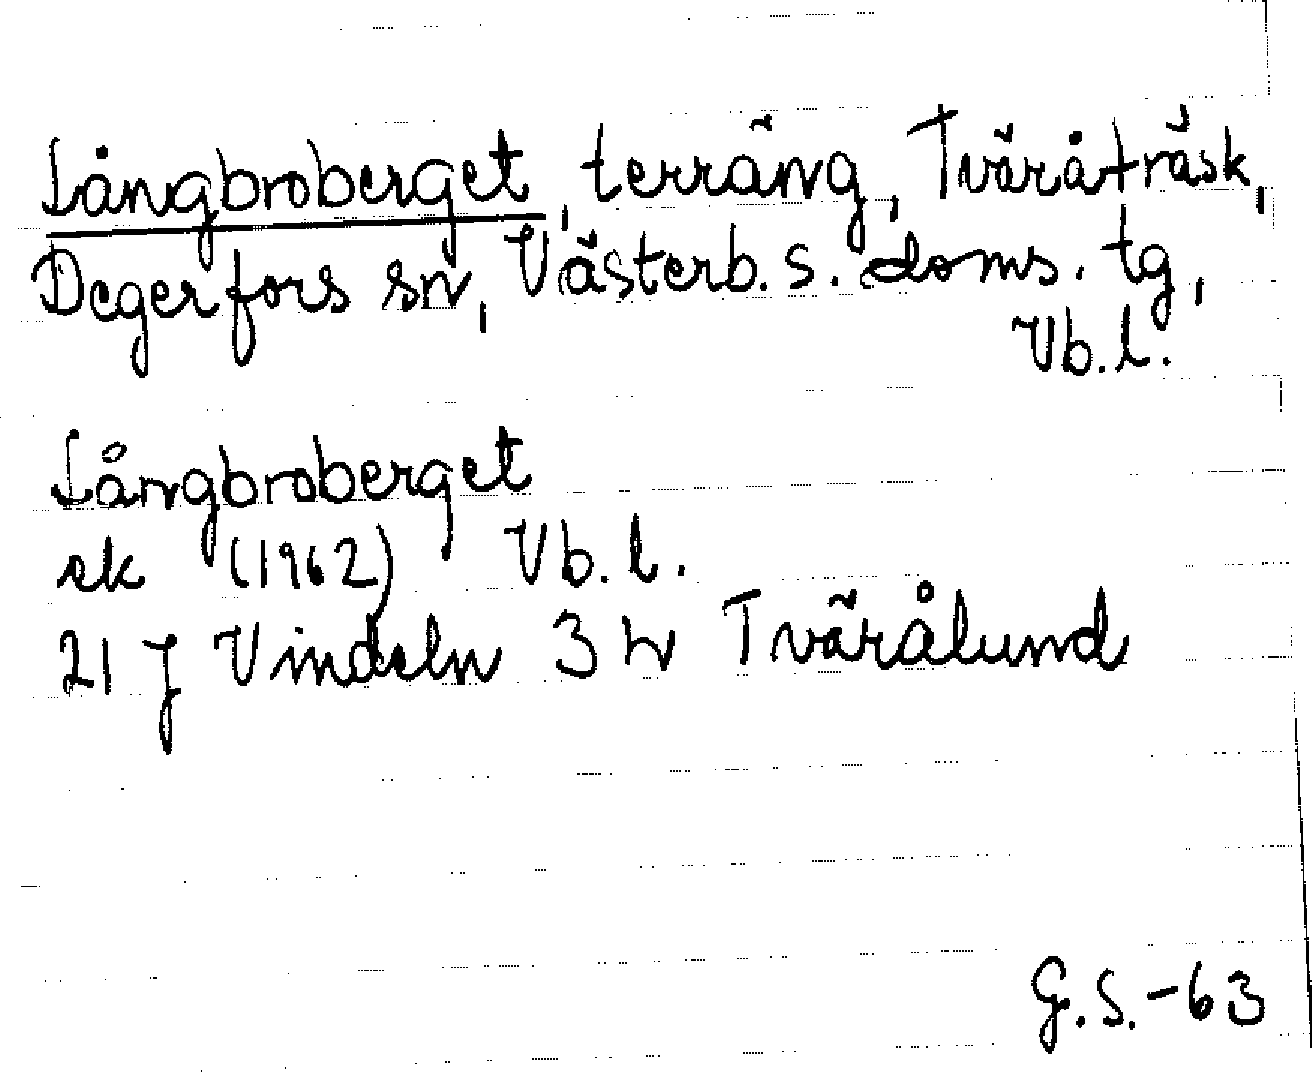 Långbroberget, terräng, Tväråträsk,
Degerfors sn, Västerb. s. doms. tg,
Vb. l.
Långbroberget
ek (1962) Vb. l.
21 J Vindeln 3 h Tvärålund
G. S. -63